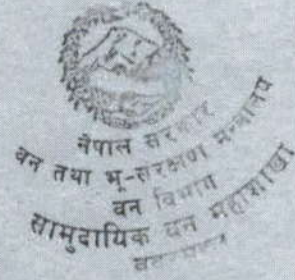 नेपाल सरकार
वन तथा भू-संरक्षण मन्त्रालय
वन विभाग
सामुदायिक वन महाशाखा